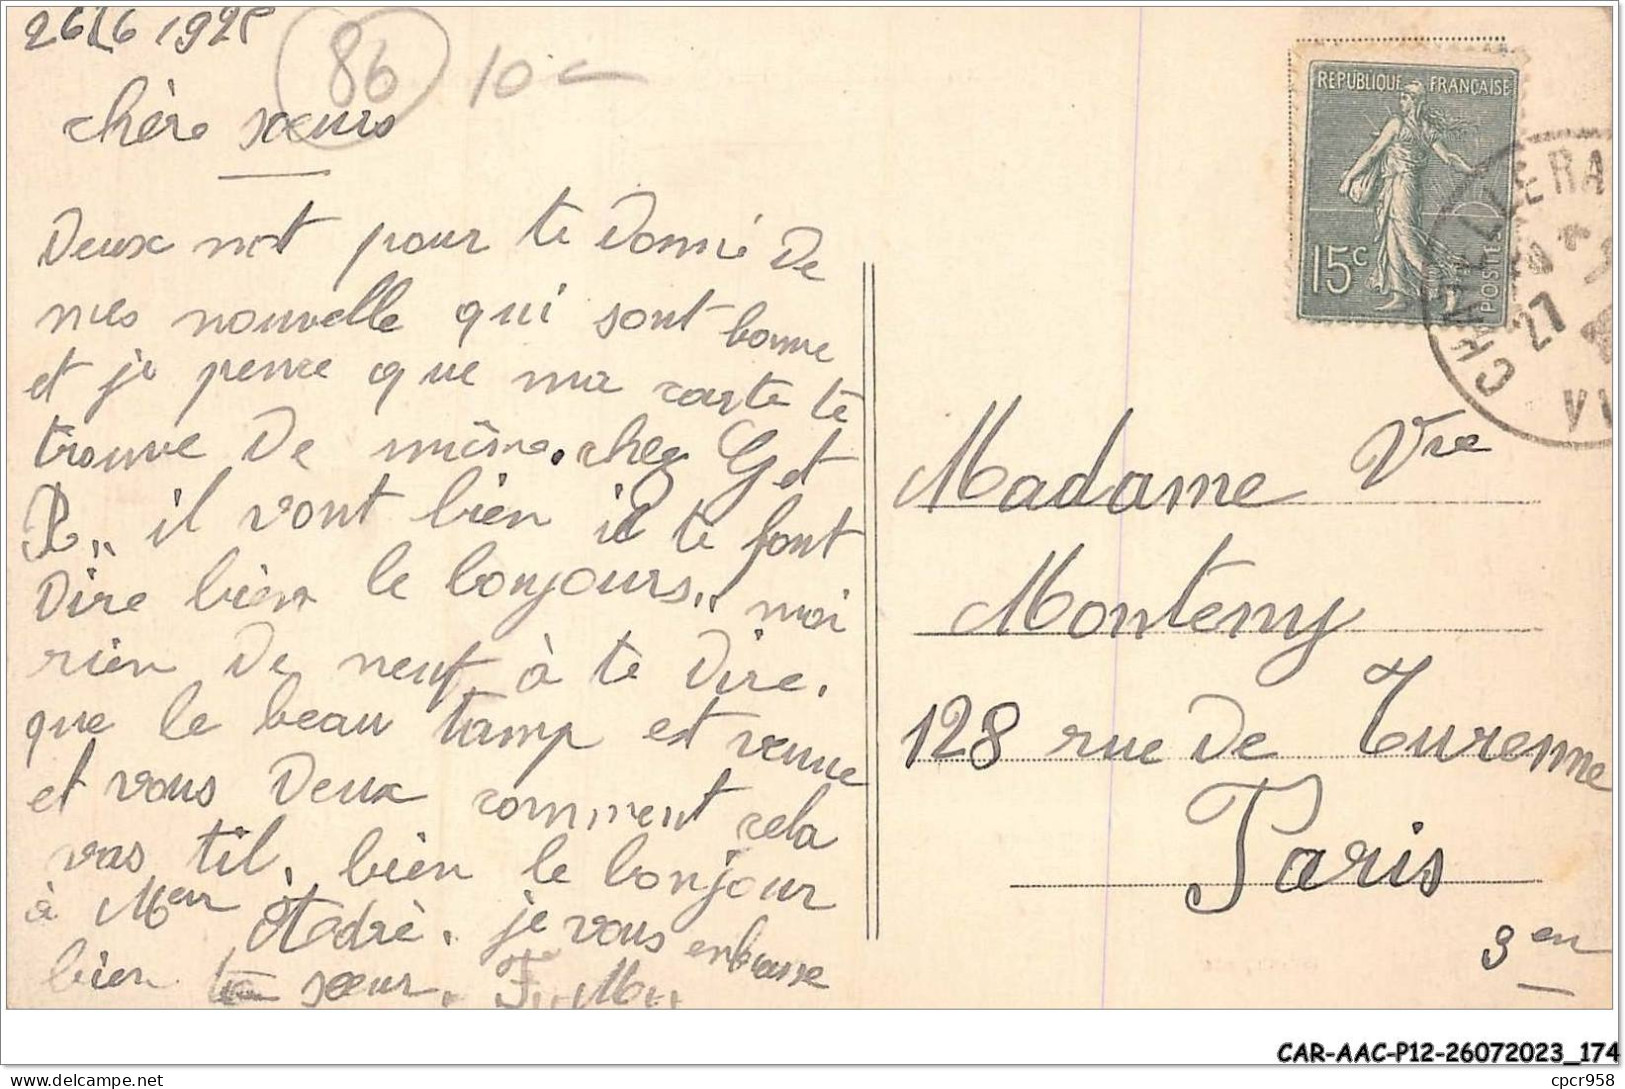 26/6 192
86 10 c
chère sœurs
Deux mot pour te Donné De
mes nouvelle qui sont bonne
et je pense que ma carte te
trouve De même. chez G et
R,, il vont bien il te font
Dire bien le bonjours,, moi
rien De neuf à te Dire.
que le beau tamp est venue
et vous Deux comment cela
vas til. bien le bonjour
à Meur Adré. je vous embrasse
bien ta sœur. F,, M,,
REPUBLIQUE FRANÇAISE
15c
POSTES
27
Madame Vve
Monteny
128 rue De Turenne
Paris
3 em
CAR-AAC-P12-26072023_174
delcampe.net
cpcr958